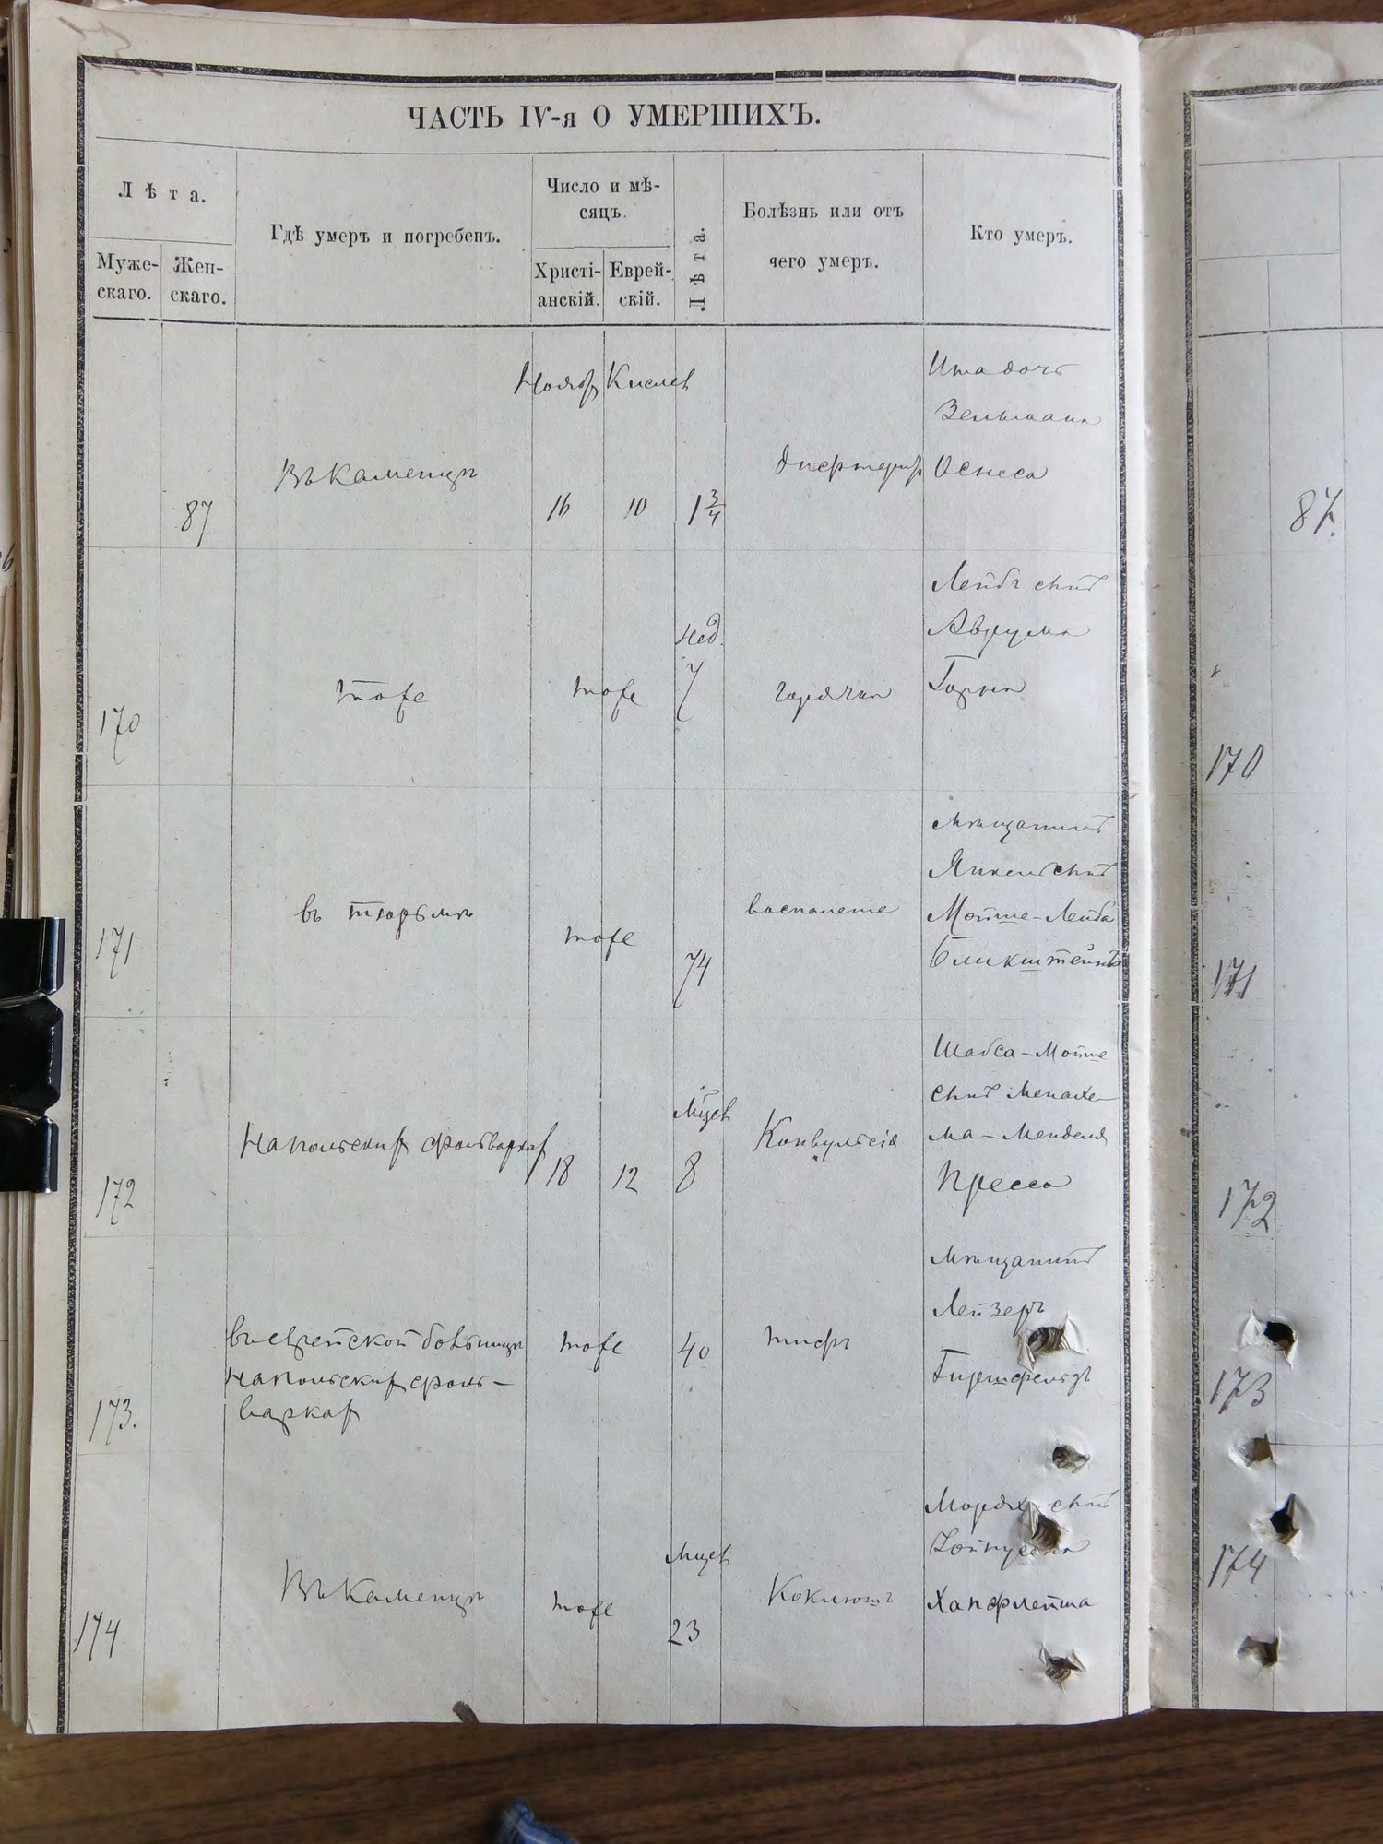 ЧАСТЬ IV-я О УМЕРШИХЪ.
Лѣта.
Муже-
скаго.
Жен-
скаго.
Гдѣ умеръ и погребенъ.
Число и мѣ-
сяцъ.
Христі-
анскій.
Еврей-
скій.
Лѣта.
Болѣзнь или отъ
чего умеръ.
Кто умеръ.
87
Въ Каменцѣ
Ноябр
16
Кислев
10
1 3/4
дисентерія
дочь
Зельмана
87.
170
тоже
тоже
Нед.
7
горячка
Лейбъ сынъ
Аврума
170
171
въ тюрьмѣ
тоже
74
воспаление
мѣщанинъ
Янкель сынъ
Мойше-Лейба
Бликштейнъ
171
172
На польских фольварках
18
12
Мцев
8
Конвульсія
Шабса-Мойше
сынъ Менахе-
ма-Менделя
Пресса
172
173.
въ еврейской больницѣ
На польских фоль-
варках
тоже
40
тифъ
мѣщанинъ
Лейзеръ
Гиршфельдъ
173
174
Въ Каменцѣ
тоже
Мцев
23
Коклюшъ
сынъ
Хапфлейша
174